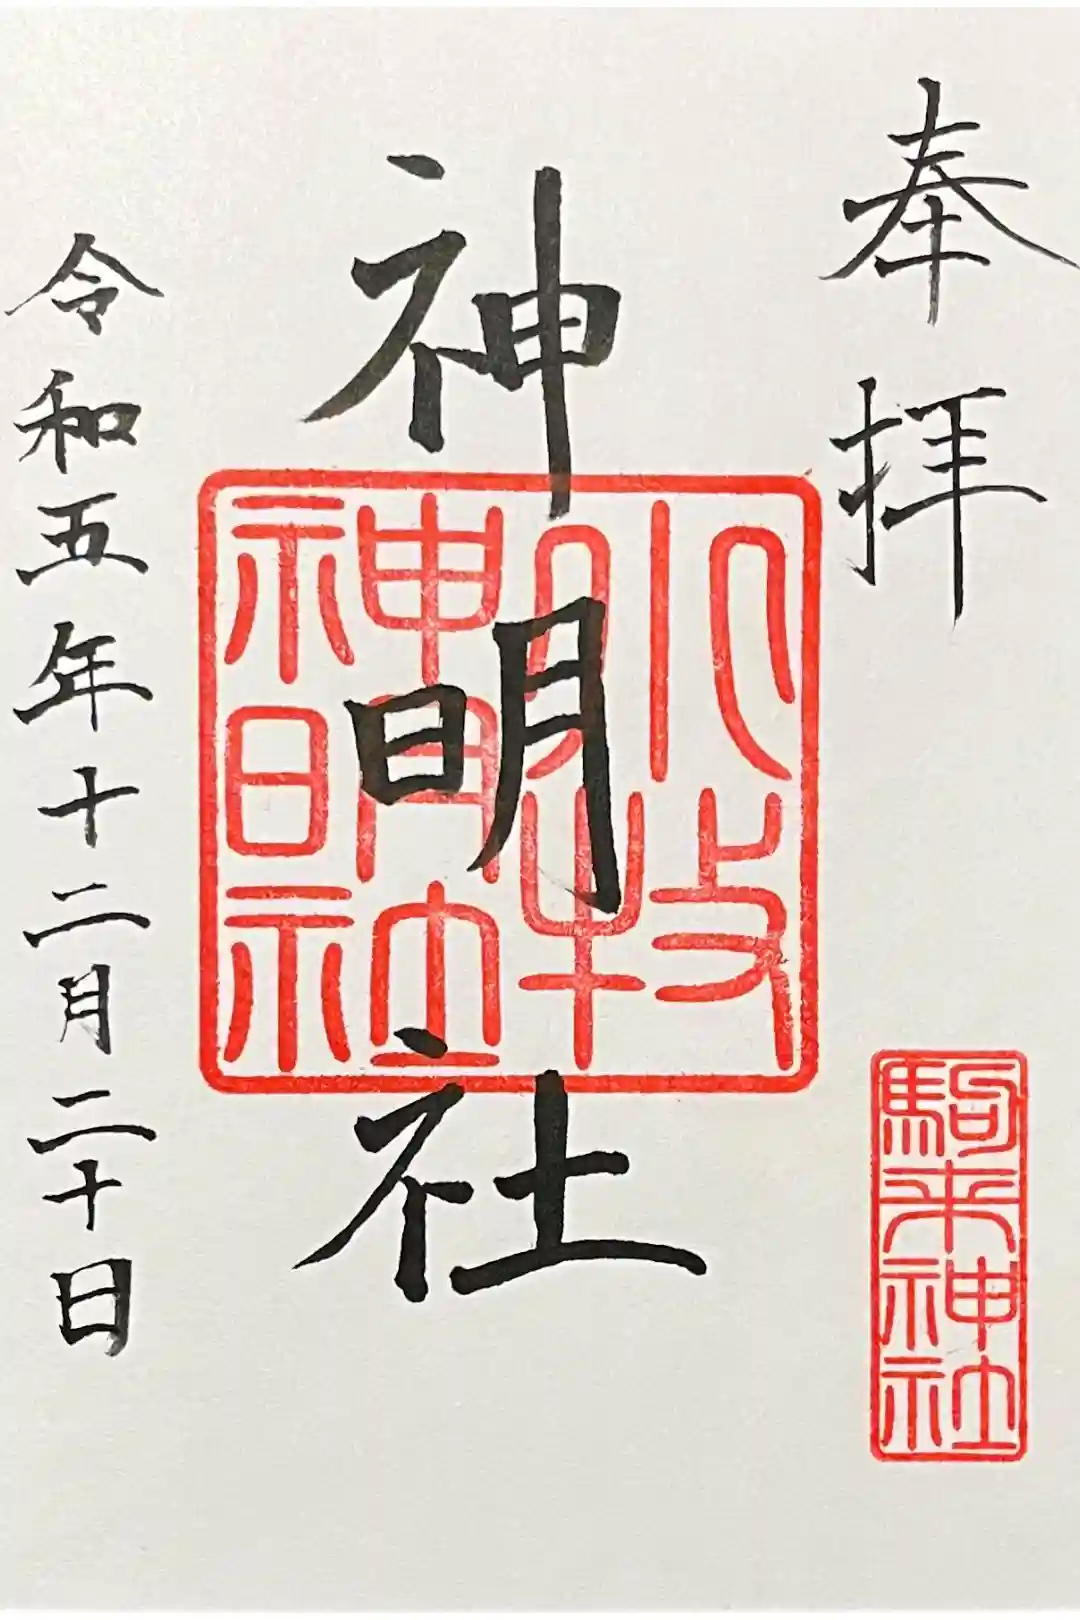 奉拝
駒来神社
神明社
小牧
神明社
令和五年十二月二十日